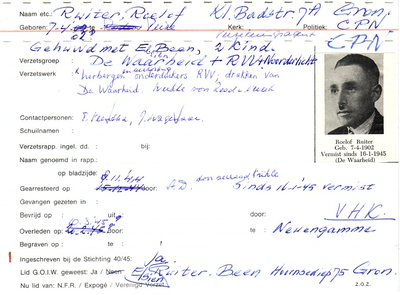 Naam etc. Ruiter, Roelof Kl. Badstr. 7A Gron.
Geboren: 7-4- Kerk: Politiek: CPN
CPN
Gehuwd met El. Been, 2 kind.
Verzetsgroep De Waarheid + RVV + Noorderlicht
Verzetswerk herbergen onderduikers RVV, drukken van
De Waarheid.
Contactpersonen:
Schuilnaam :
Verzetsrapp. ingel. dd. : bij:
Naam genoemd in rapp.:
op bladzijde: 8.11.44
Gearresteerd op 15.12.44 door: S.D. Sinds 16.1.'45 vermist
Gevangen gezeten in :
Bevrijd op : uit : door: VHK.
Overleden op : te : Neuengamme
Begraven op : te :
Ingeschreven bij de Stichting 40/45: ja.
Lid G.O.I.W. geweest: Ja / Neen El. Ruiter-Been Hunsediep 75 Gron.
Nu lid van: N.F.R. / Expogé / Verenigd Verzet z.o.z.
Roelof Ruiter
Geb. 7-4-1902
Vermist sinds 16-1-1945
(De Waarheid)